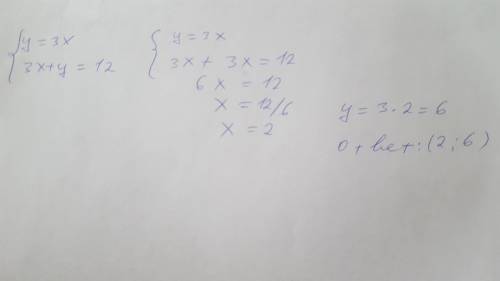 y = 3x
3x+y = 12
y = 3x
3x + 3x = 12
6x = 12
x = 12/6
x = 2
y = 3 · 2 = 6
Ответ: (2; 6)